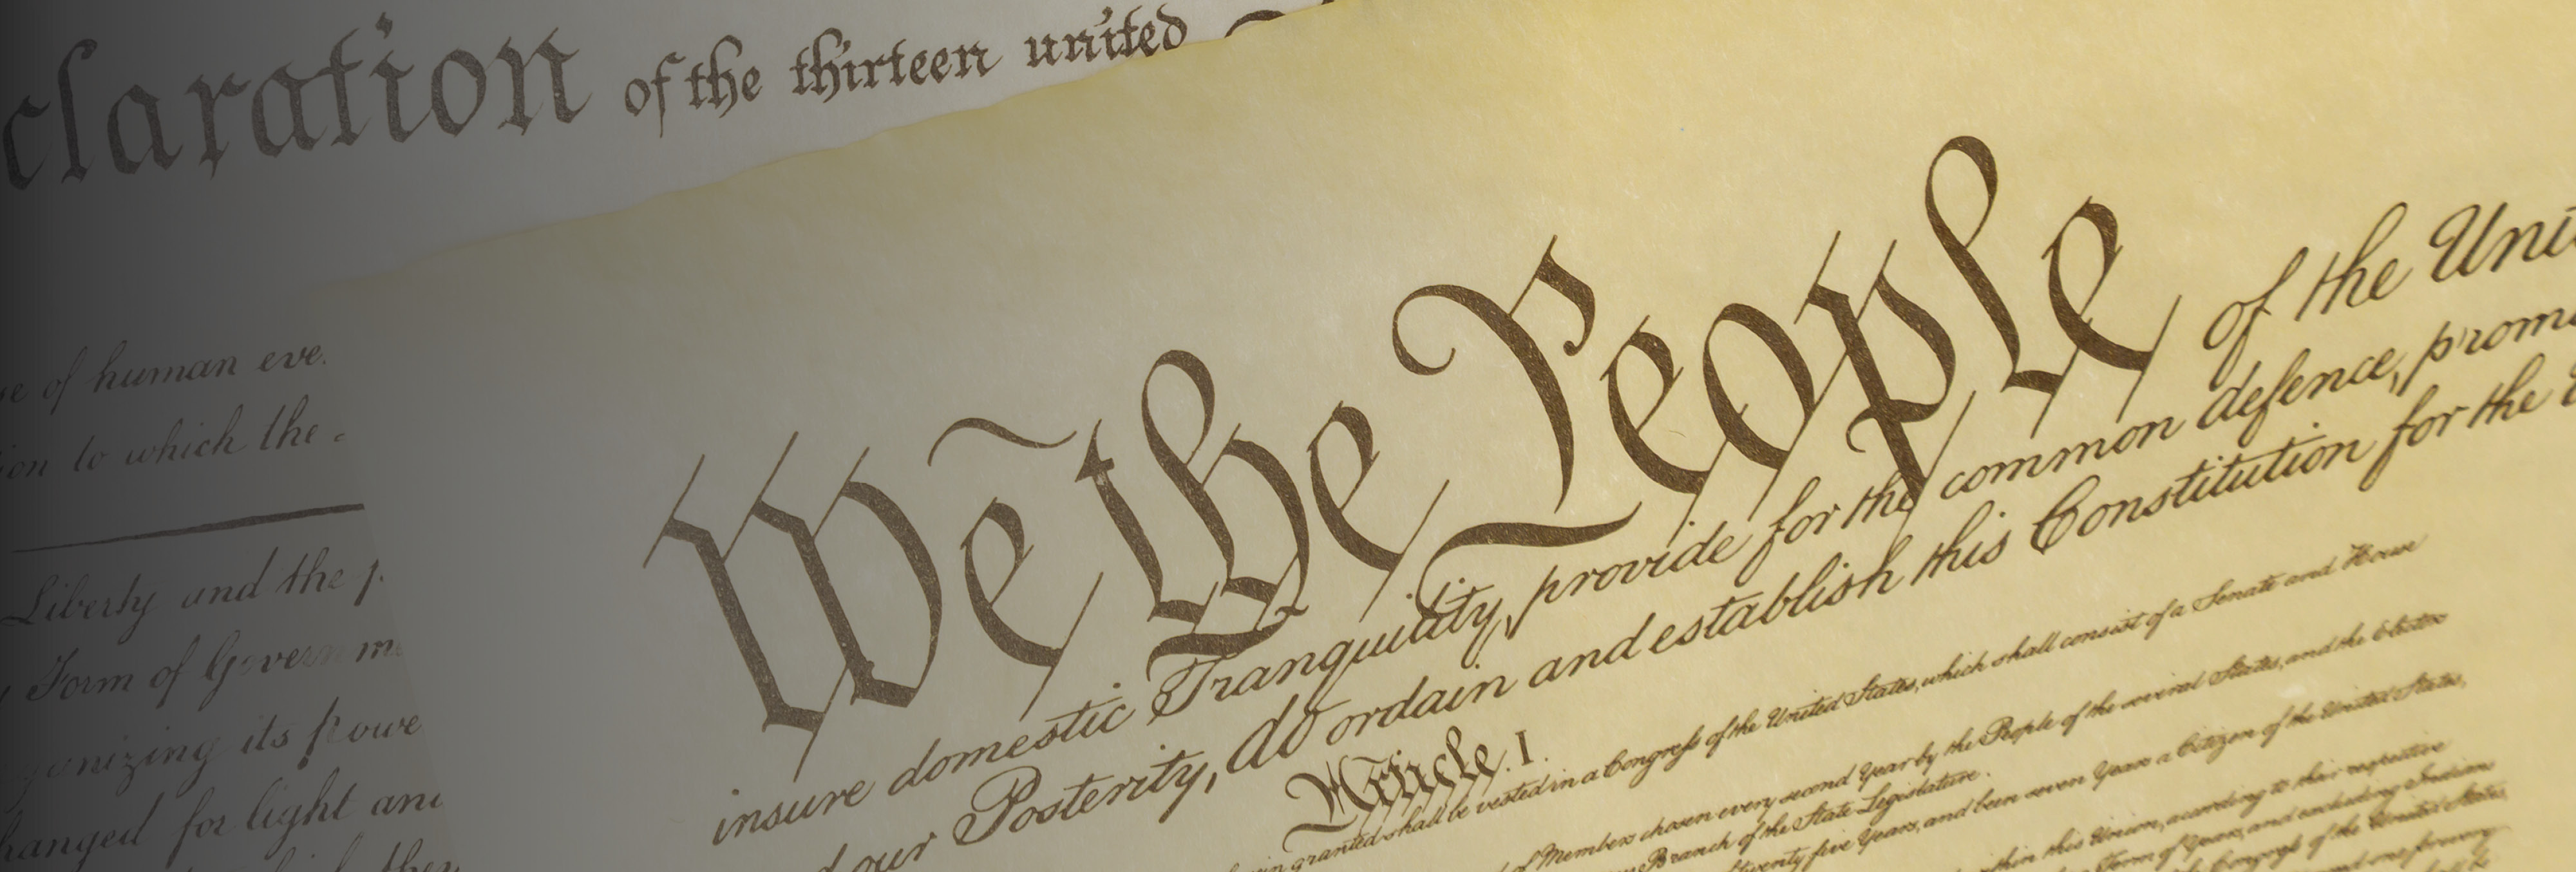 claration of the thirteen united
se of human eve
ion to which the
Liberty and the p
Form of Governme
ganizing its powe
hanged for light and
We the People of the Uni
insure domestic Tranquility, provide for the common defence, prom
d our Posterity, do ordain and establish this Constitution for the
Article. I.
in granted shall be vested in a Congress of the United States, which shall consist of a Senate and House
of Members chosen every second Year by the People of the several States, and the Electors
Branch of the State Legislature.
twenty five Years, and been seven Years a Citizen of the United States,
within this Union, according to their respective
Term of Years, and excluding Indians
Congress of the United States,